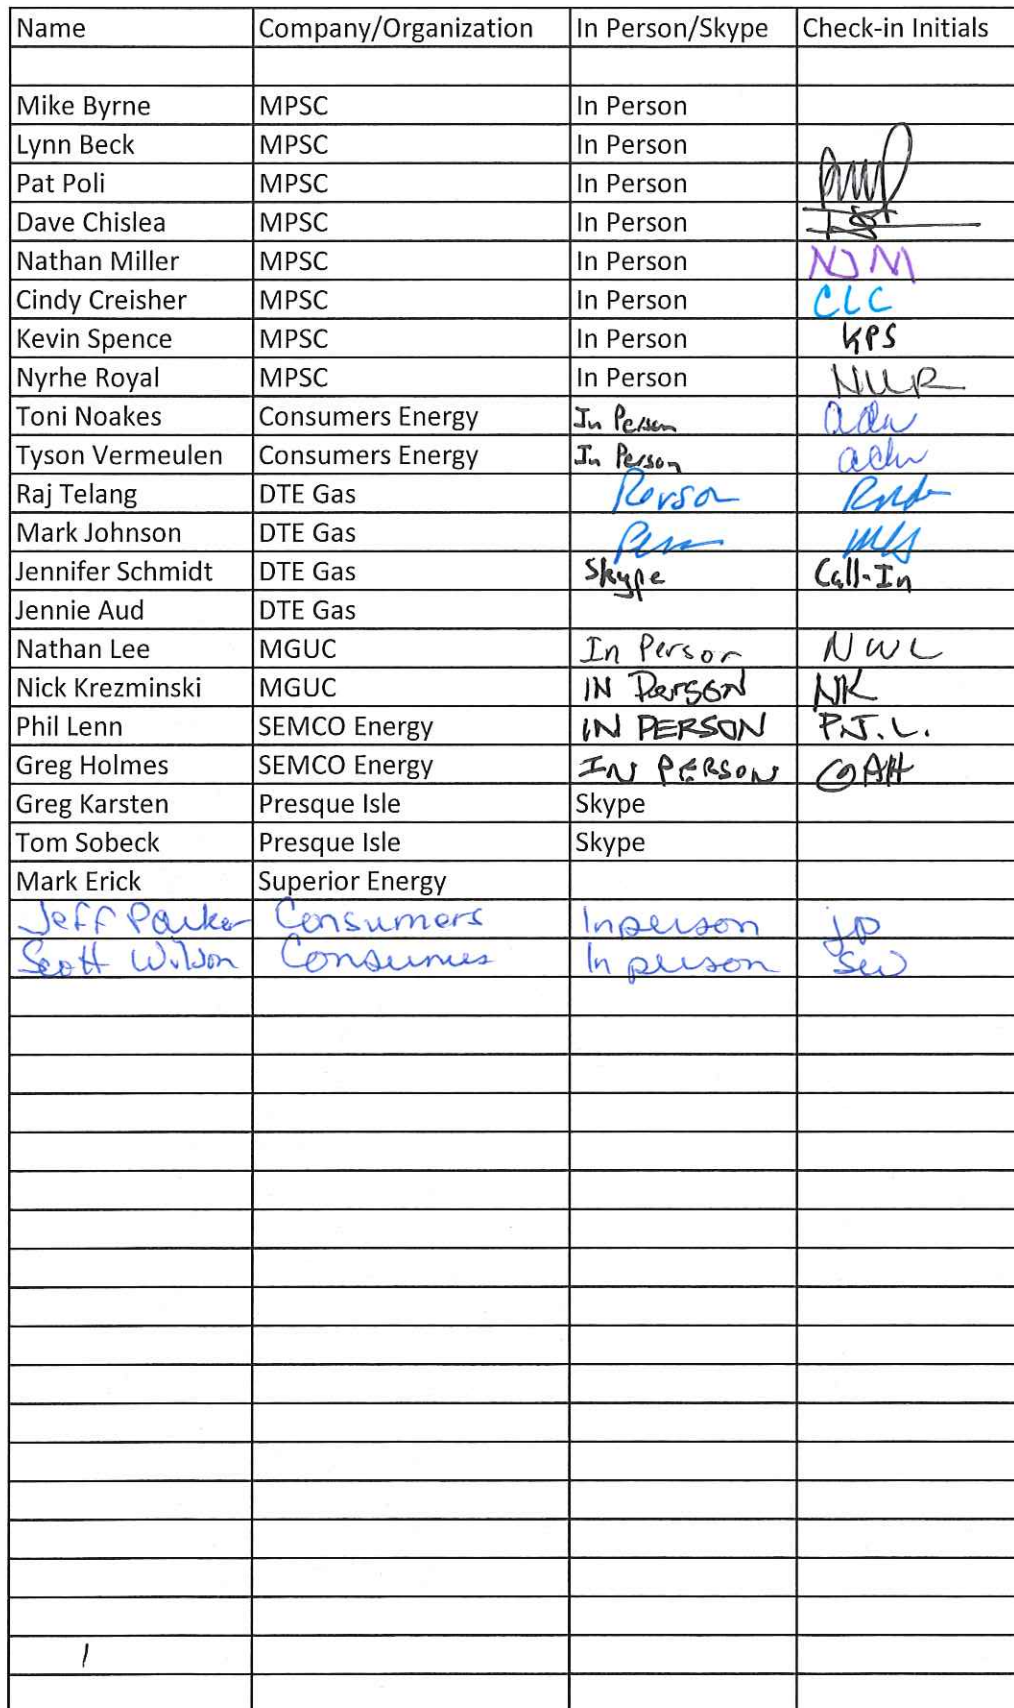 Name Company/Organization In Person/Skype Check-in Initials
Mike Byrne MPSC In Person
Lynn Beck MPSC In Person
Pat Poli MPSC In Person
Dave Chislea MPSC In Person
Nathan Miller MPSC In Person NJM
Cindy Creisher MPSC In Person CLC
Kevin Spence MPSC In Person KPS
Nyrhe Royal MPSC In Person NUR
Toni Noakes Consumers Energy In Person
Tyson Vermeulen Consumers Energy In Person
Raj Telang DTE Gas Person
Mark Johnson DTE Gas
Jennifer Schmidt DTE Gas Skype Call-In
Jennie Aud DTE Gas
Nathan Lee MGUC In Person NWL
Nick Krezminski MGUC IN PersoN NK
Phil Lenn SEMCO Energy IN PERSON P.J.L.
Greg Holmes SEMCO Energy IN PERSON GAH
Greg Karsten Presque Isle Skype
Tom Sobeck Presque Isle Skype
Mark Erick Superior Energy
Jeff Parker Consumers Inperson jp
Scott Wilson Consumers In person sw